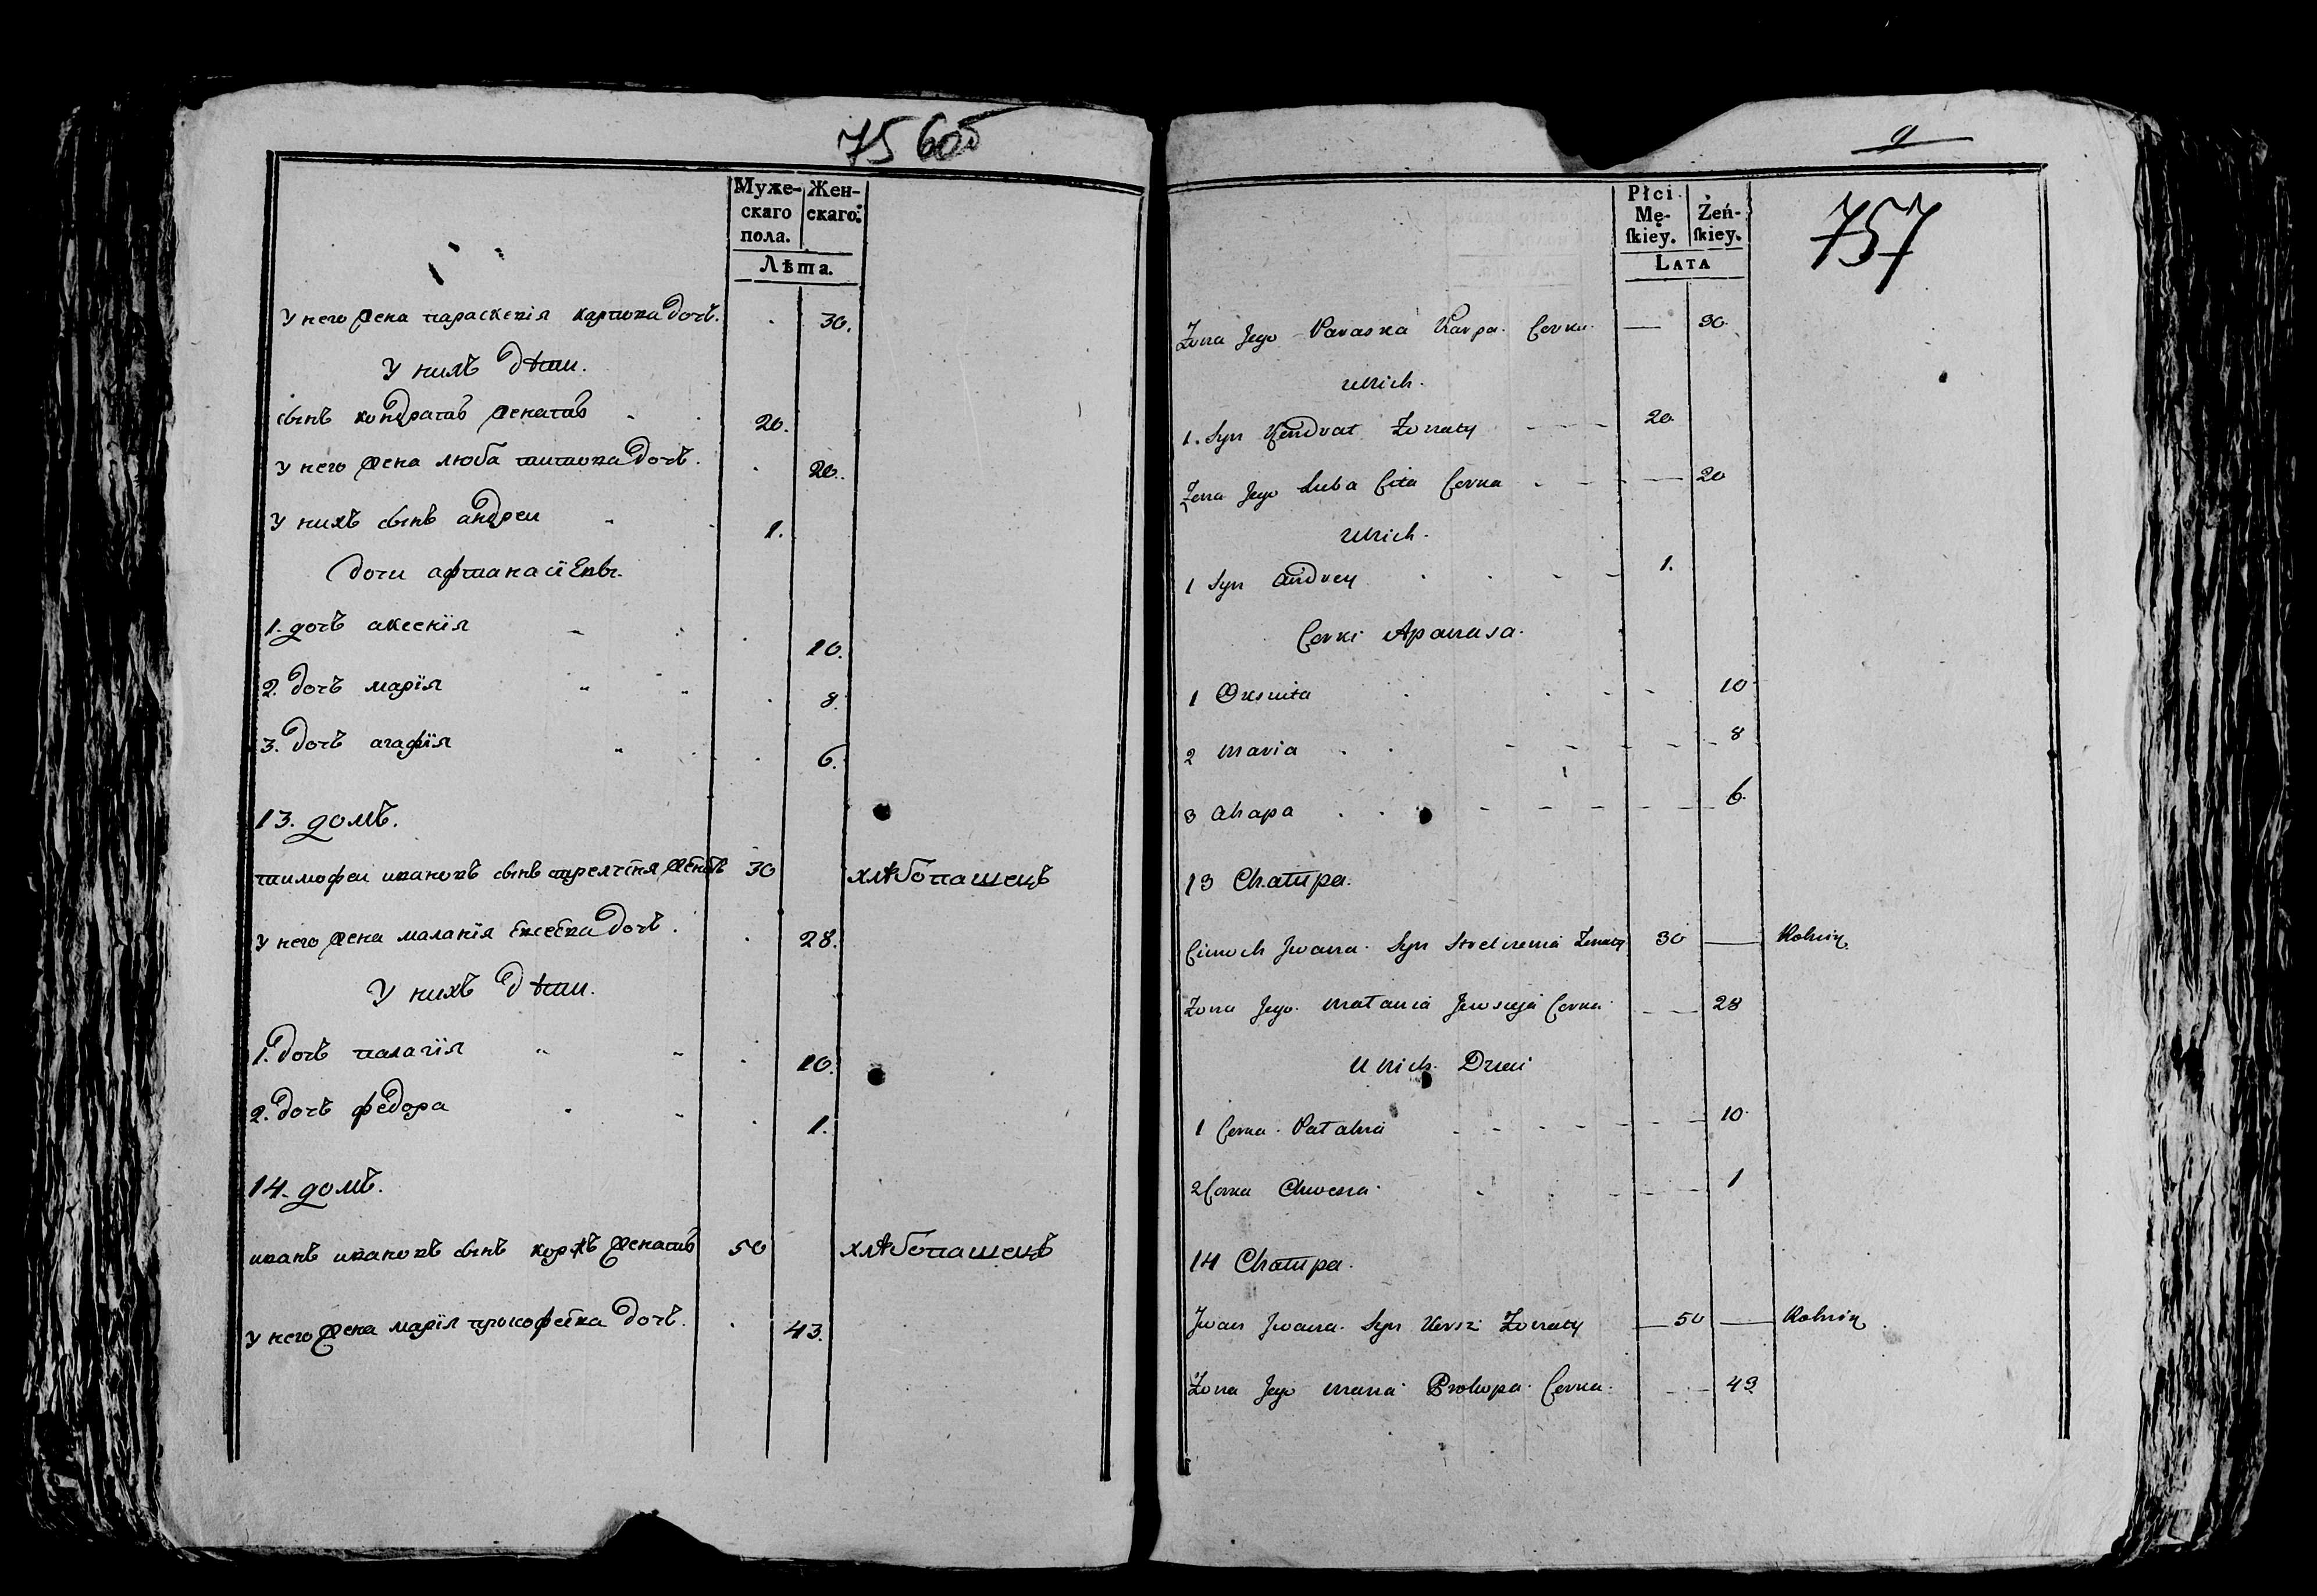 75 6об
Муже- Жен-
скаго скаго.
пола.
Лѣта.
У него жена параскевія карпова дочь. 30.
У нихъ дѣти.
сынъ кондратъ женатъ 20.
У него жена люба титова дочь. 20.
У нихъ сынъ андреи 1.
дочи афтанасіевы.
1. дочь аксенія 10.
2. дочь марія 8.
3. дочь агафія 6.
13. домъ.
тимофеи ивановъ сынъ стрелченя женатъ 30 хлѣбопашецъ
У него жена маланія евсеева дочь. 28.
У нихъ дѣти.
1. дочь палагія 10.
2. дочь федора 1.
14. домъ.
иванъ ивановъ сынъ коржъ женатъ 50 хлѣбопашецъ
У него жена марія прокофева дочь. 43.
9
757
Płci
Mę- Żeń-
skiey. skiey.
LATA
Żona Jego Paraska Karpa Corka — 30.
U Nich.
1. Syn Kondrat Żonaty 20.
Żona Jego Luba Cita Corka 20
U Nich.
1 Syn Andrey 1.
Corki Apanasa.
1 Oksinia 10
2 Maria 8
3 Ahapa 6.
13 Chałupa.
Cimoch Jwana Syn Strelczenia Żonaty 30 — Rolnik
Żona Jego Małania Jewsieja Corka 28
U Nich Dzieci
1 Corka Pałahia 10
2 Corka Chwesia 1
14 Chałupa.
Jwan Jwana Syn Korż Żonaty — 50 — Rolnik
Żona Jego Maria Prokopa Corka 43